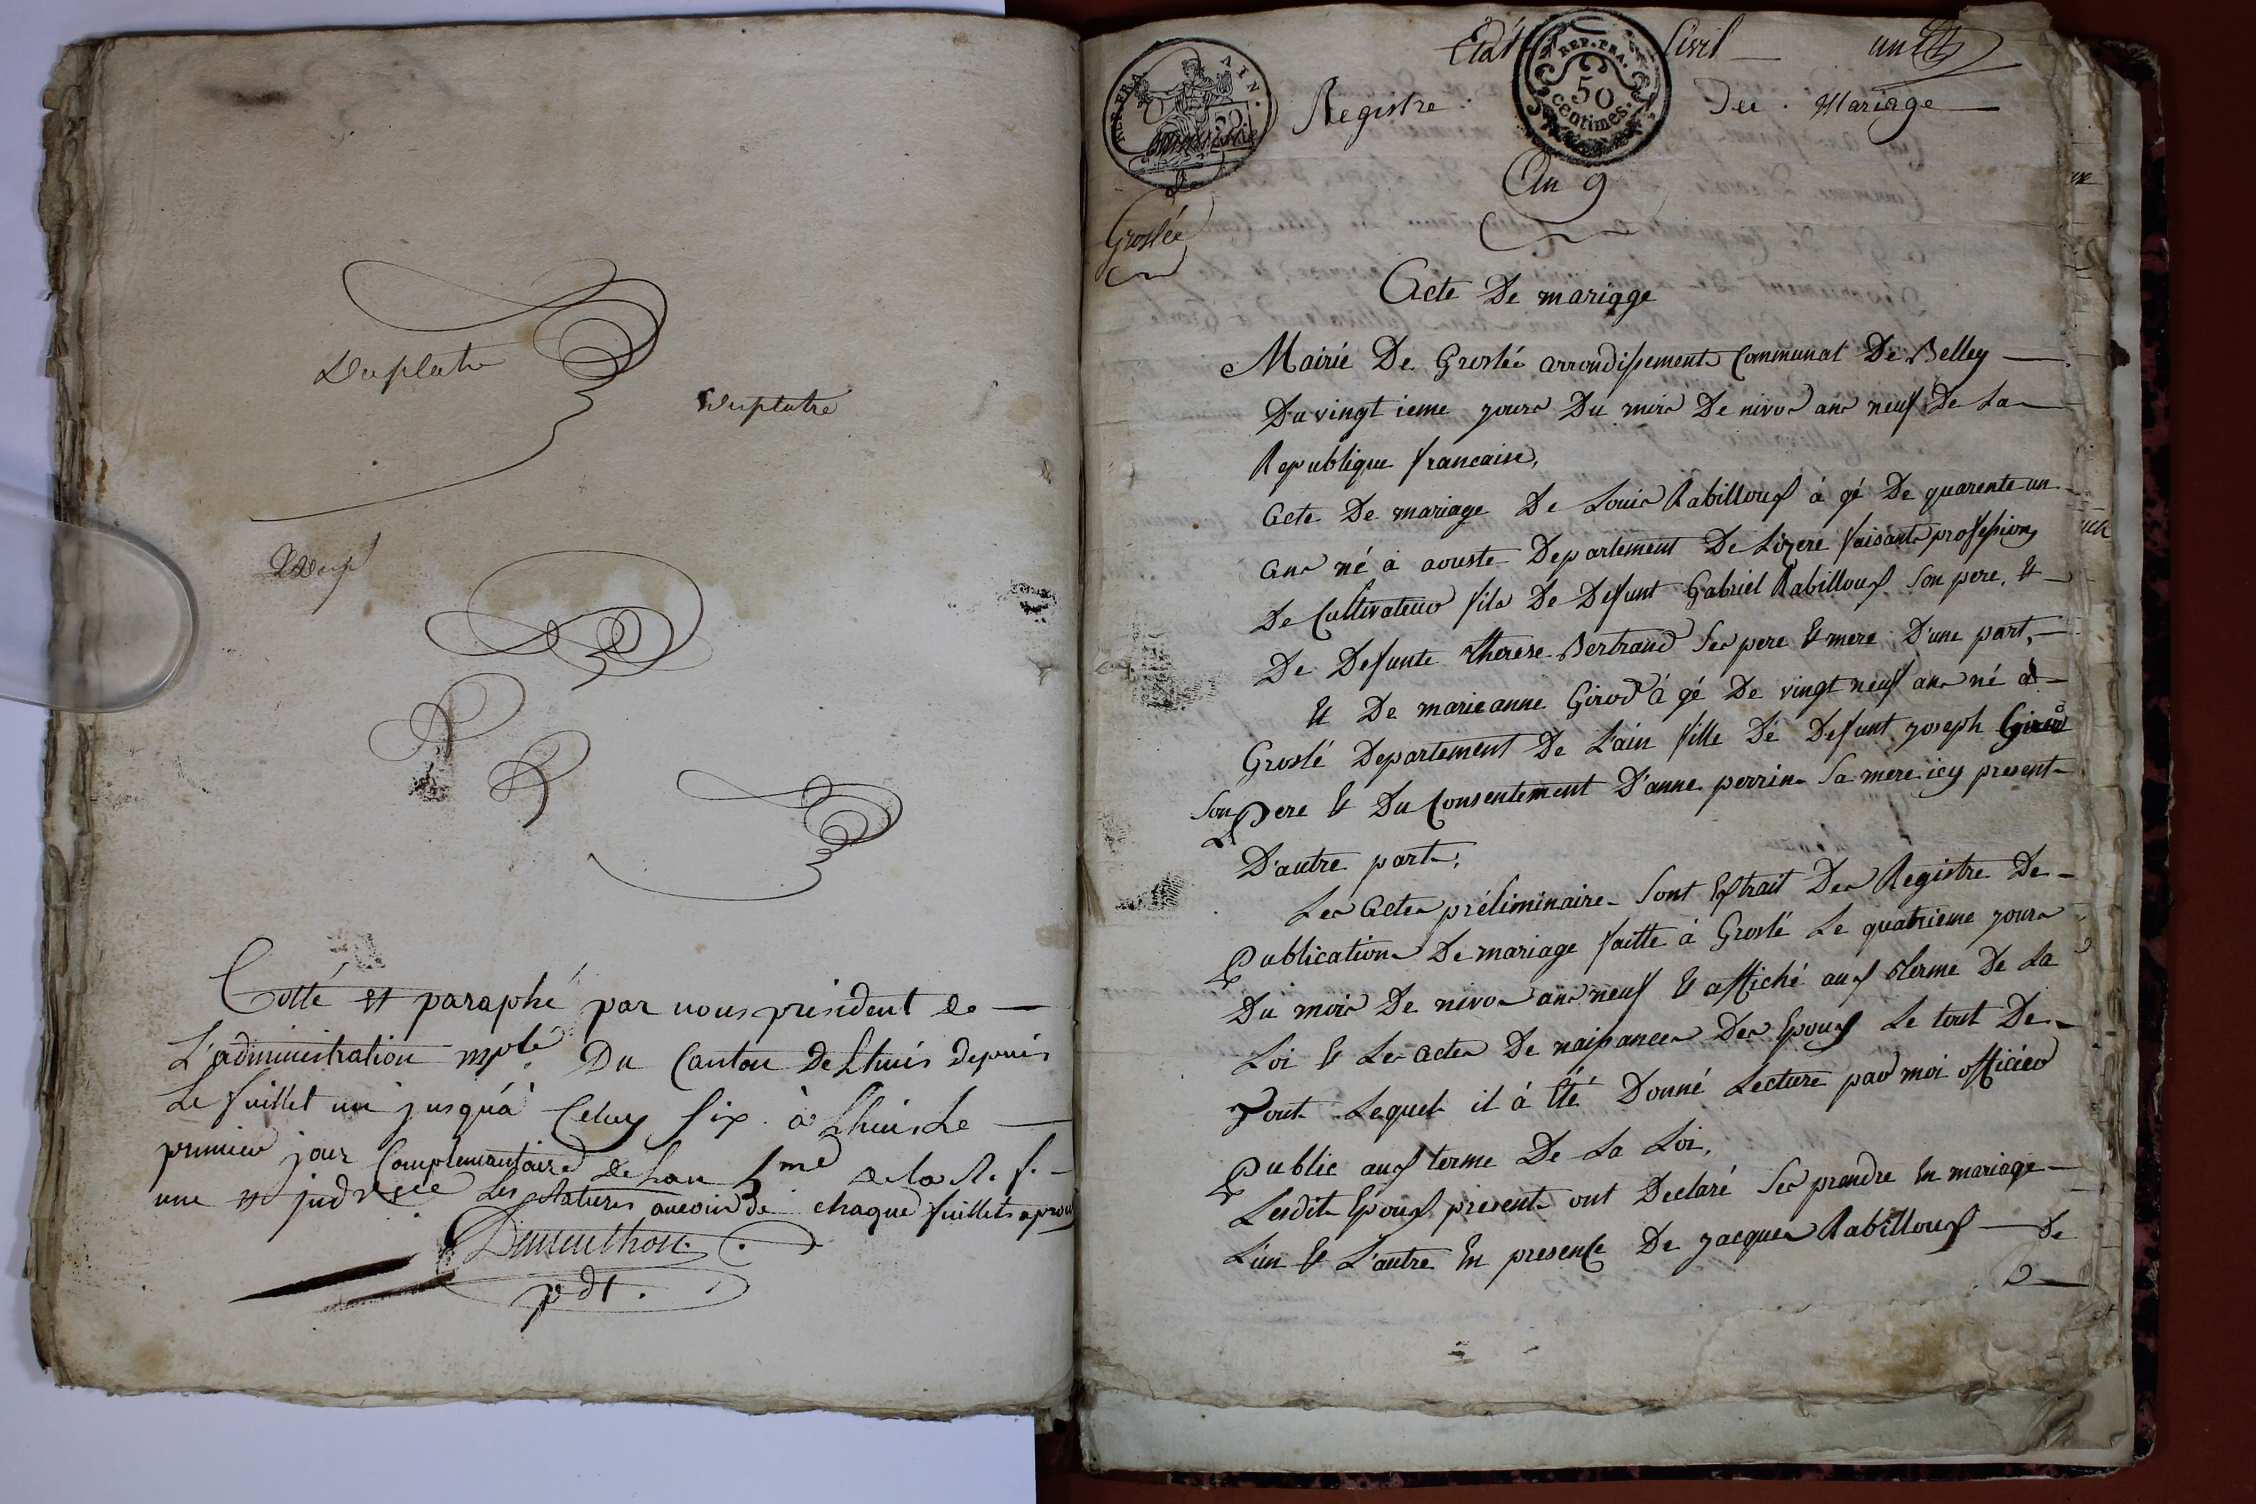 Duplatre
Duplatre
Dup
Cotté et paraphé par nous président de
L'administration mple Du Canton de Lhuis depuis
Le fuillet un jusqu'à Celuy six à Lhuis Le
premier jour Complementaire de Lan 8me de la R. f.
une et indivisée Les ratures au de chaque fuillets aprou
Dementhon
pdt.
Etat Civil un
ADM. FRA AIN.
REP. FRA. 50 centimes.
Registre De Mariage
Commune
de
Groslée
An 9
Acte De mariage
Mairie De Groslée arrondissement Communal De Belley
Du vingt ieme jours Du mois De nivos ans neuf De La
Republique francaise,
Acte De mariage De Louis Rabilloux á gé De quarente un
ans né a aouste Departement De Lizere faisant profession
De Cultivateur fils De Defunt Gabriel Rabilloux Son pere, &
De Defunte therese Bertrand Ses pere & mere D'une part,
& De marieanne Girod á gé De vingt neuf ans né a
Groslé Departement De L'ain fille De Defunt joseph Girod
Son Pere & Du Consentement D'anne perrin Sa mere icy present
D'autre part,
Les Actes préliminaires Sont Extrait Des Registre De
Publications De mariage faitte à Groslé Le quatrieme jours
Du mois De nivos ans neuf & affiché aux terme De La
Loi & Les actes De naissances Des Epoux Le tout De
Pout Lequel il á Eté Donné Lecture par moi officier
Public aux terme De La Loi,
Lesdit Epoux present ont Declaré Ses prendre En mariage
L'un & L'autre En presence De jacques Rabilloux de